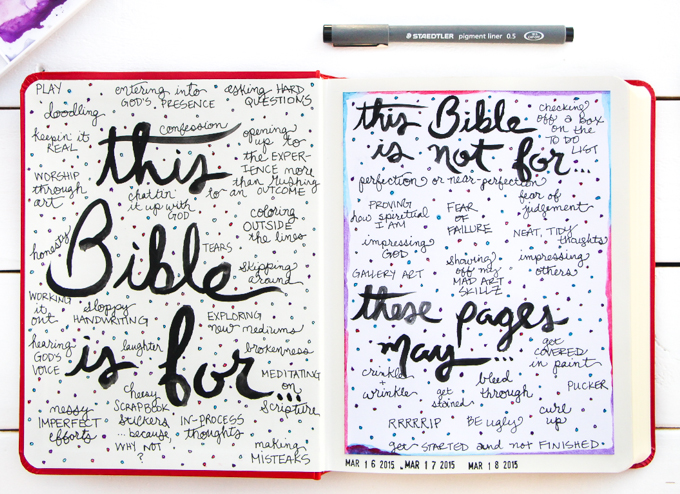 STAEDTLER pigment liner 0.5
this
Bible
is for...
PLAY
entering into
GOD'S PRESENCE
asking HARD
QUESTIONS
doodling
confession
keepin' it
REAL
opening
up to
the EXPER-
IENCE more
than rushing
to an OUTCOME
WORSHIP
through
art
chattin'
it up with
GOD
coloring
OUTSIDE
the lines
honesty
TEARS
skipping
around
WORKING
it
out
sloppy
HANDWRITING
EXPLORING
new mediums
hearing
GOD'S
VOICE
laughter
brokenness
MEDITATING
on
Scripture
messy
IMPERFECT
efforts
cheesy
SCRAPBOOK
stickers
...because
WHY NOT
?
IN-PROCESS
thoughts
making
MISTEAKS
this Bible
is not for...
checking
off a box
on the
TO DO
LIST
perfection or near-perfection
PROVING
how spiritual
I AM
FEAR
OF
FAILURE
fear of
judgement
impressing
GOD
NEAT, TIDY
thoughts
GALLERY ART
showing
off my
MAD ART
SKILLZ
impressing
others
these pages
may...
get
COVERED
in paint
crinkle
+
wrinkle
get
stained
bleed
through
PUCKER
RRRRRIP
BE ugly
curl
up
get STARTED and not FINISHED.
MAR 16 2015 MAR 17 2015 MAR 18 2015